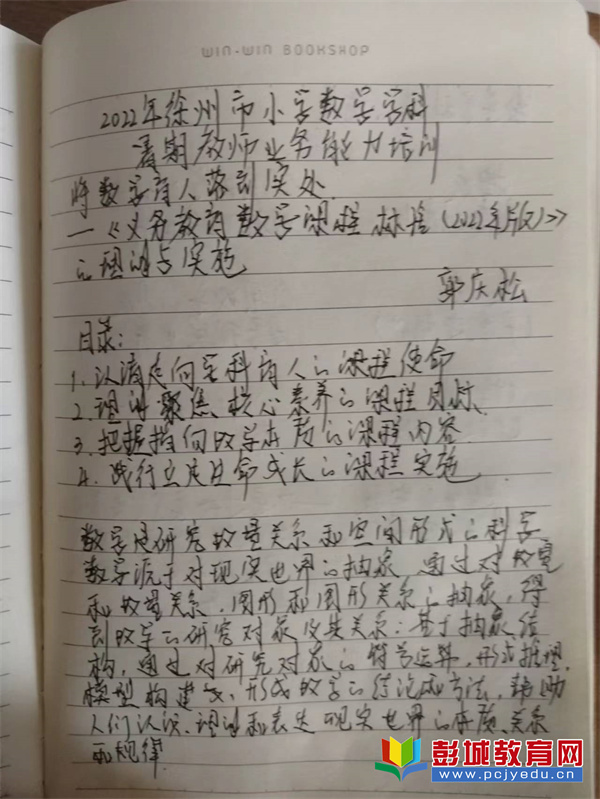 WIN-WIN BOOKSHOP
2022年徐州市小学数学学科
暑期教师业务能力培训
将数学育人落到实处
一《义务教育数学课程标准(2022年版)》
的理解与实施
郭庆松
目录:
1. 认清走向学科育人的课程使命
2. 理解聚焦核心素养的课程目标
3. 把握指向数学本质的课程内容
4. 践行立足生命成长的课程实施
数学是研究数量关系和空间形式的科学.
数学源于对现实世界的抽象 通过对数量
和数量关系.图形和图形关系的抽象,得
到数学的研究对象及其关系;基于抽象结
构,通过对研究对象的符号运算,形式推理.
模型构建等,形成数学的结论和方法,帮助
人们认识.理解和表达现实世界的本质.关系
和规律
彭城教育网
www.pcjyedu.cn